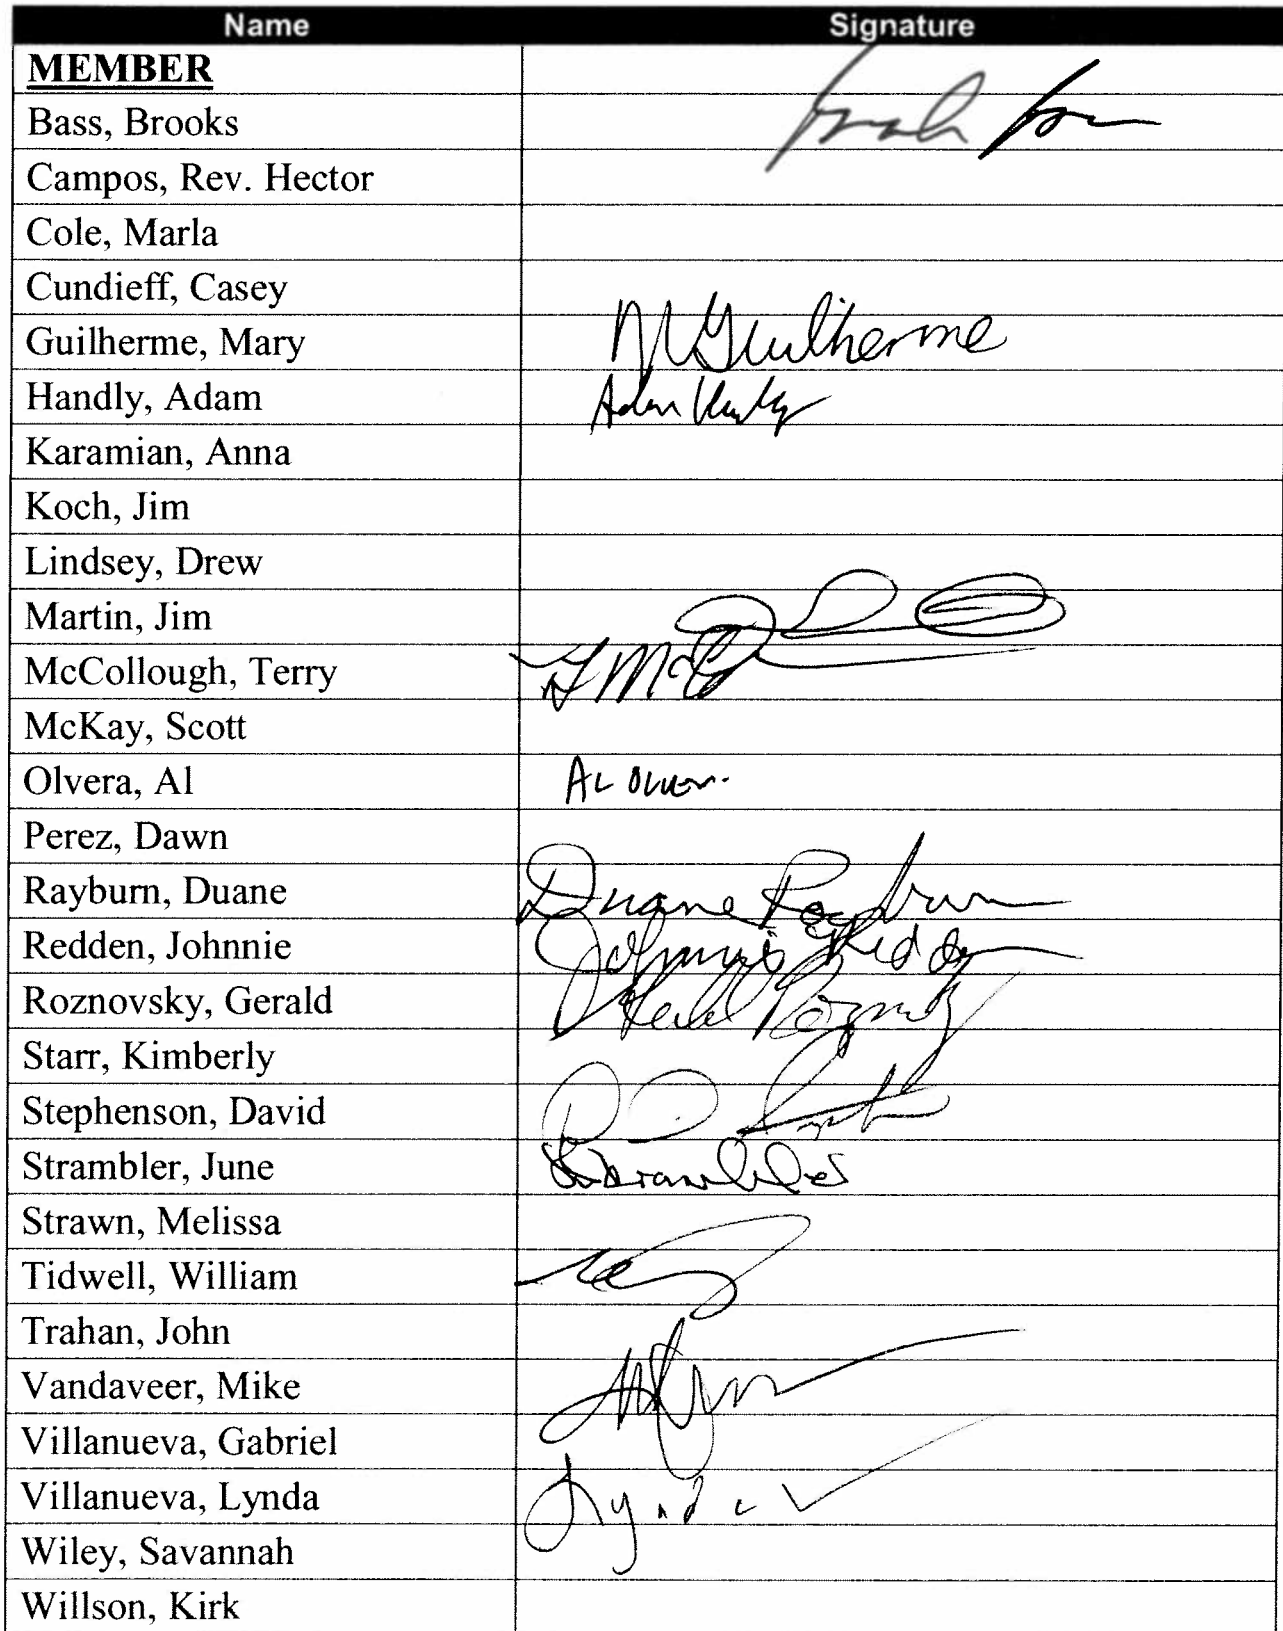 Name Signature
MEMBER
Bass, Brooks
Campos, Rev. Hector
Cole, Marla
Cundieff, Casey
Guilherme, Mary M Guilherme
Handly, Adam Adam Handly
Karamian, Anna
Koch, Jim
Lindsey, Drew
Martin, Jim
McCollough, Terry
McKay, Scott
Olvera, Al AL Olvera
Perez, Dawn
Rayburn, Duane Duane Rayburn
Redden, Johnnie Johnnie Redden
Roznovsky, Gerald
Starr, Kimberly
Stephenson, David
Strambler, June
Strawn, Melissa
Tidwell, William
Trahan, John
Vandaveer, Mike
Villanueva, Gabriel
Villanueva, Lynda Lynda V
Wiley, Savannah
Willson, Kirk